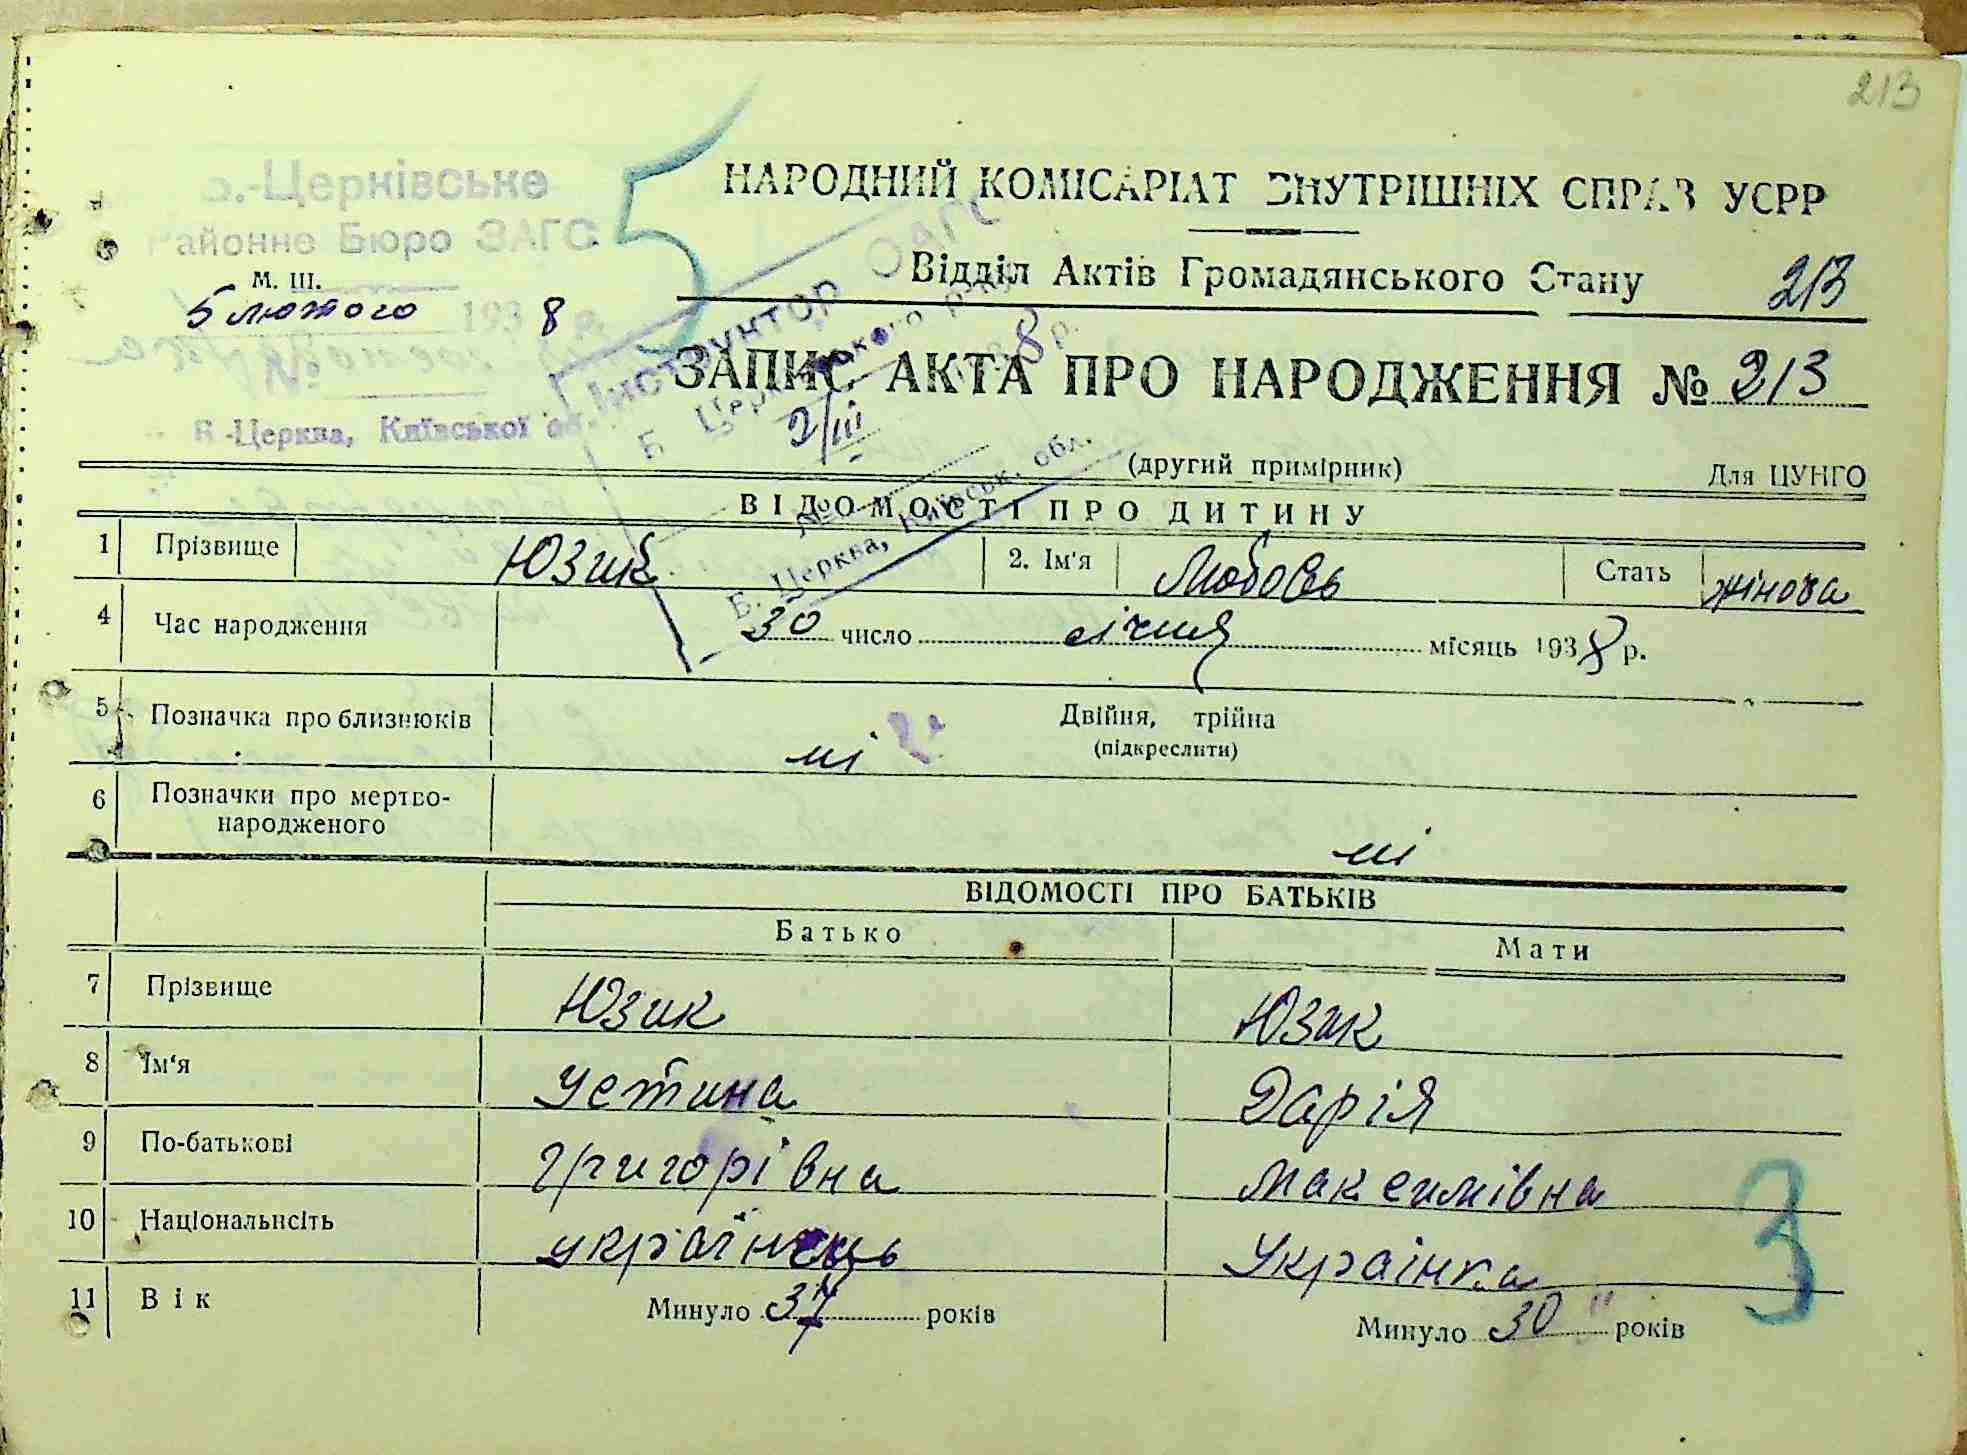 213
Б.-Церківське
Районне Бюро ЗАГС
М. Ш.
5 лютого 1938 р.
№
Б.-Церква, Київської об.
НАРОДНИЙ КОМІСАРІАТ ВНУТРІШНІХ СПРАВ УСРР
Відділ Актів Громадянського Стану 213
Інструктор ОАГС
Б. Церківського
8 р.
2/III
№
Б. Церква, Київськ. обл.
ЗАПИС АКТА ПРО НАРОДЖЕННЯ № 213
(другий примірник) Для ЦУНГО
ВІДОМОСТІ ПРО ДИТИНУ
1 Прізвище Юзик 2. Ім'я Любовь Стать жіноча
4 Час народження 30 число січня місяць 1938 р.
5 Позначка про близнюків ні Двійня, трійна
(підкреслити)
6 Позначки про мертво-
народженого ні
ВІДОМОСТІ ПРО БАТЬКІВ
Батько Мати
7 Прізвище Юзик Юзик
8 Ім'я Устина Дарія
9 По-батькові Григорівна Максимівна
10 Національнсіть українець Украінка
11 Вік Минуло 37 років Минуло 30 років
5
3